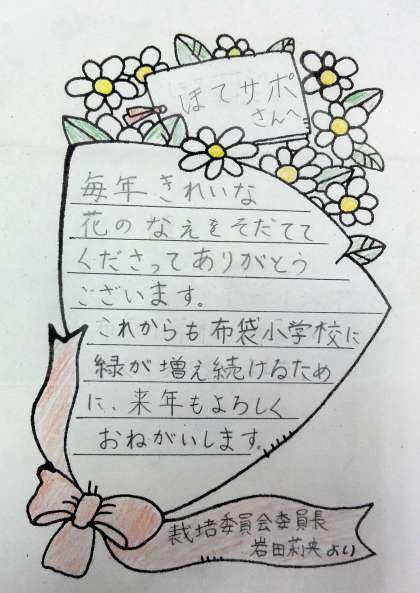 ほてサポ
さんへ
毎年きれいな
花のなえをそだてて
くださってありがとう
ございます。
これからも布袋小学校に
緑が増え続けるため
に、来年もよろしく
おねがいします。
栽培委員会委員長
岩田莉央より